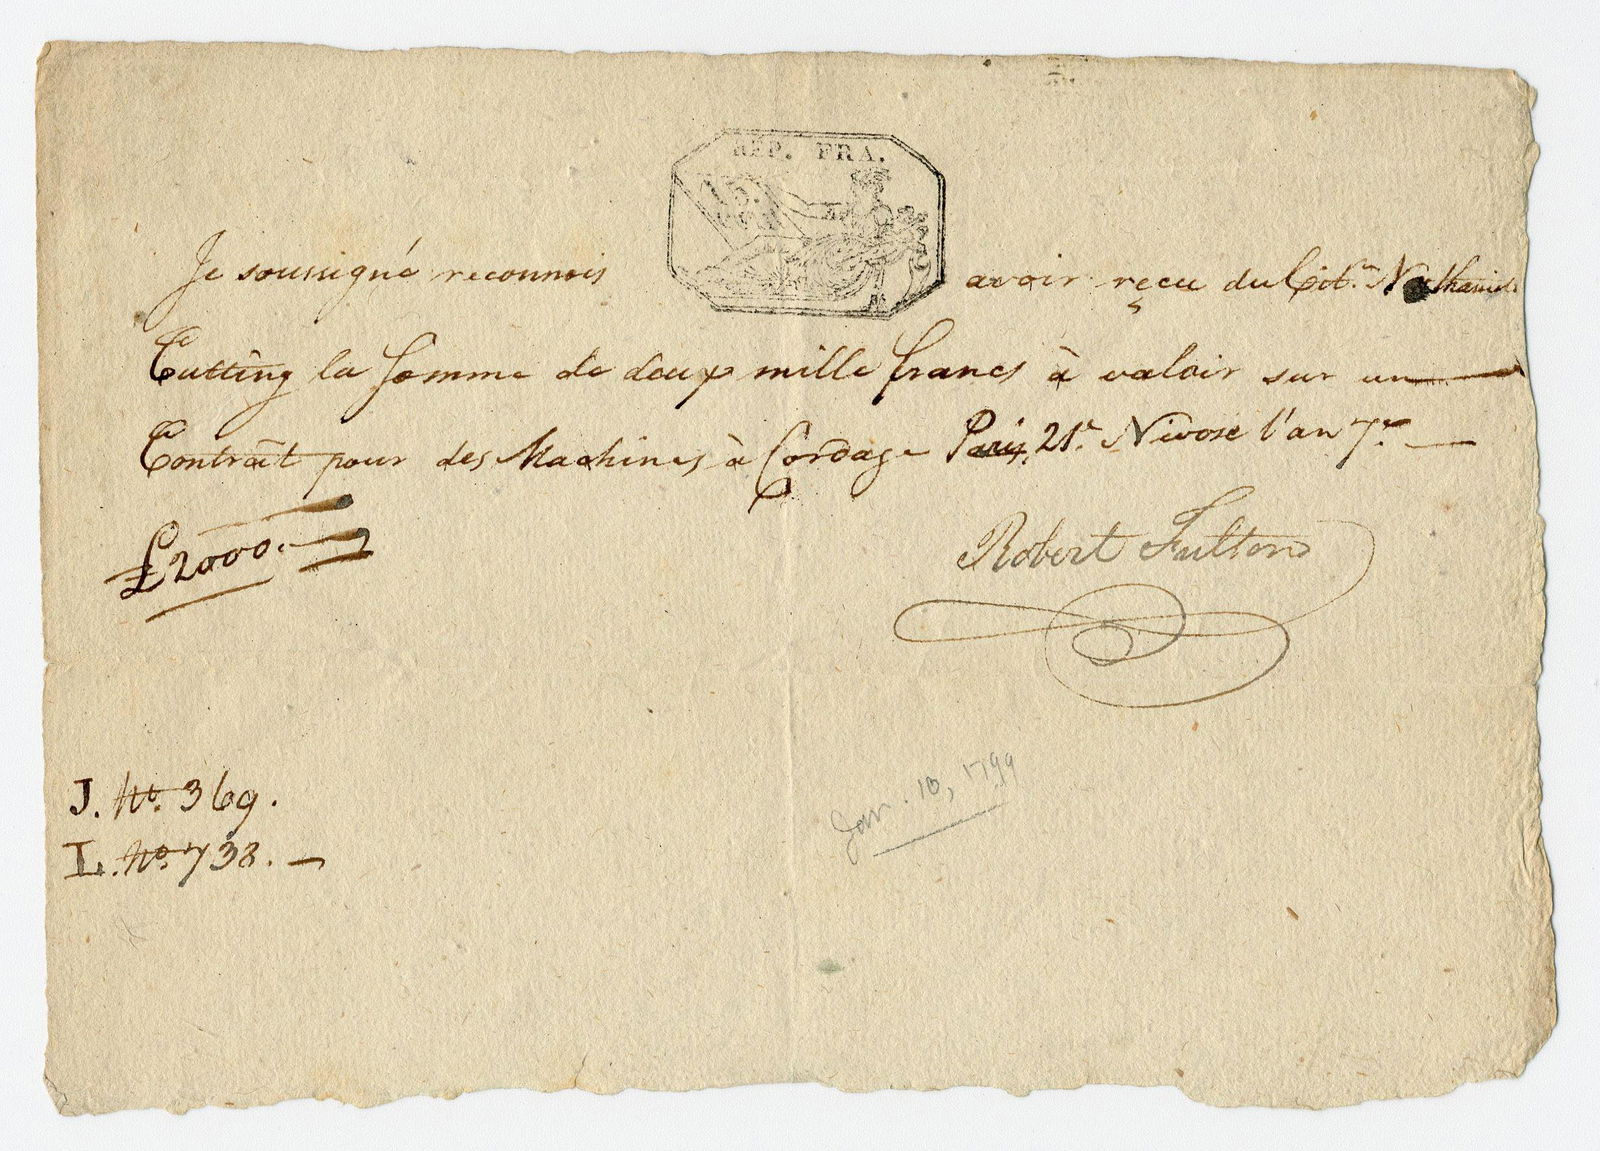 REP. FRA.
Je soussigné reconnois avoir reçu du Cit.en Nathaniel
Cutting la somme de deux mille francs à valoir sur un
Contrait pour des Machines à Cordage Paris, 21.e Nivose l'an 7.e
£2000.
Robert Fulton
J. No. 369.
L. No. 738.
Jan. 10, 1799